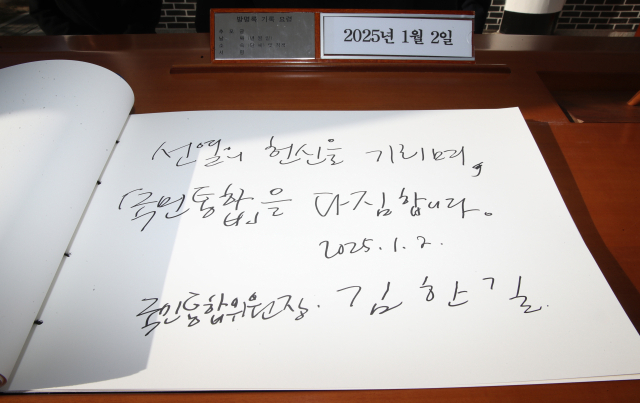 방명록 기록 요령
2025년 1월 2일
선열의 헌신을 기리며,
「국민통합」을 다짐합니다.
2025. 1. 2.
국민통합위원장. 김한길.